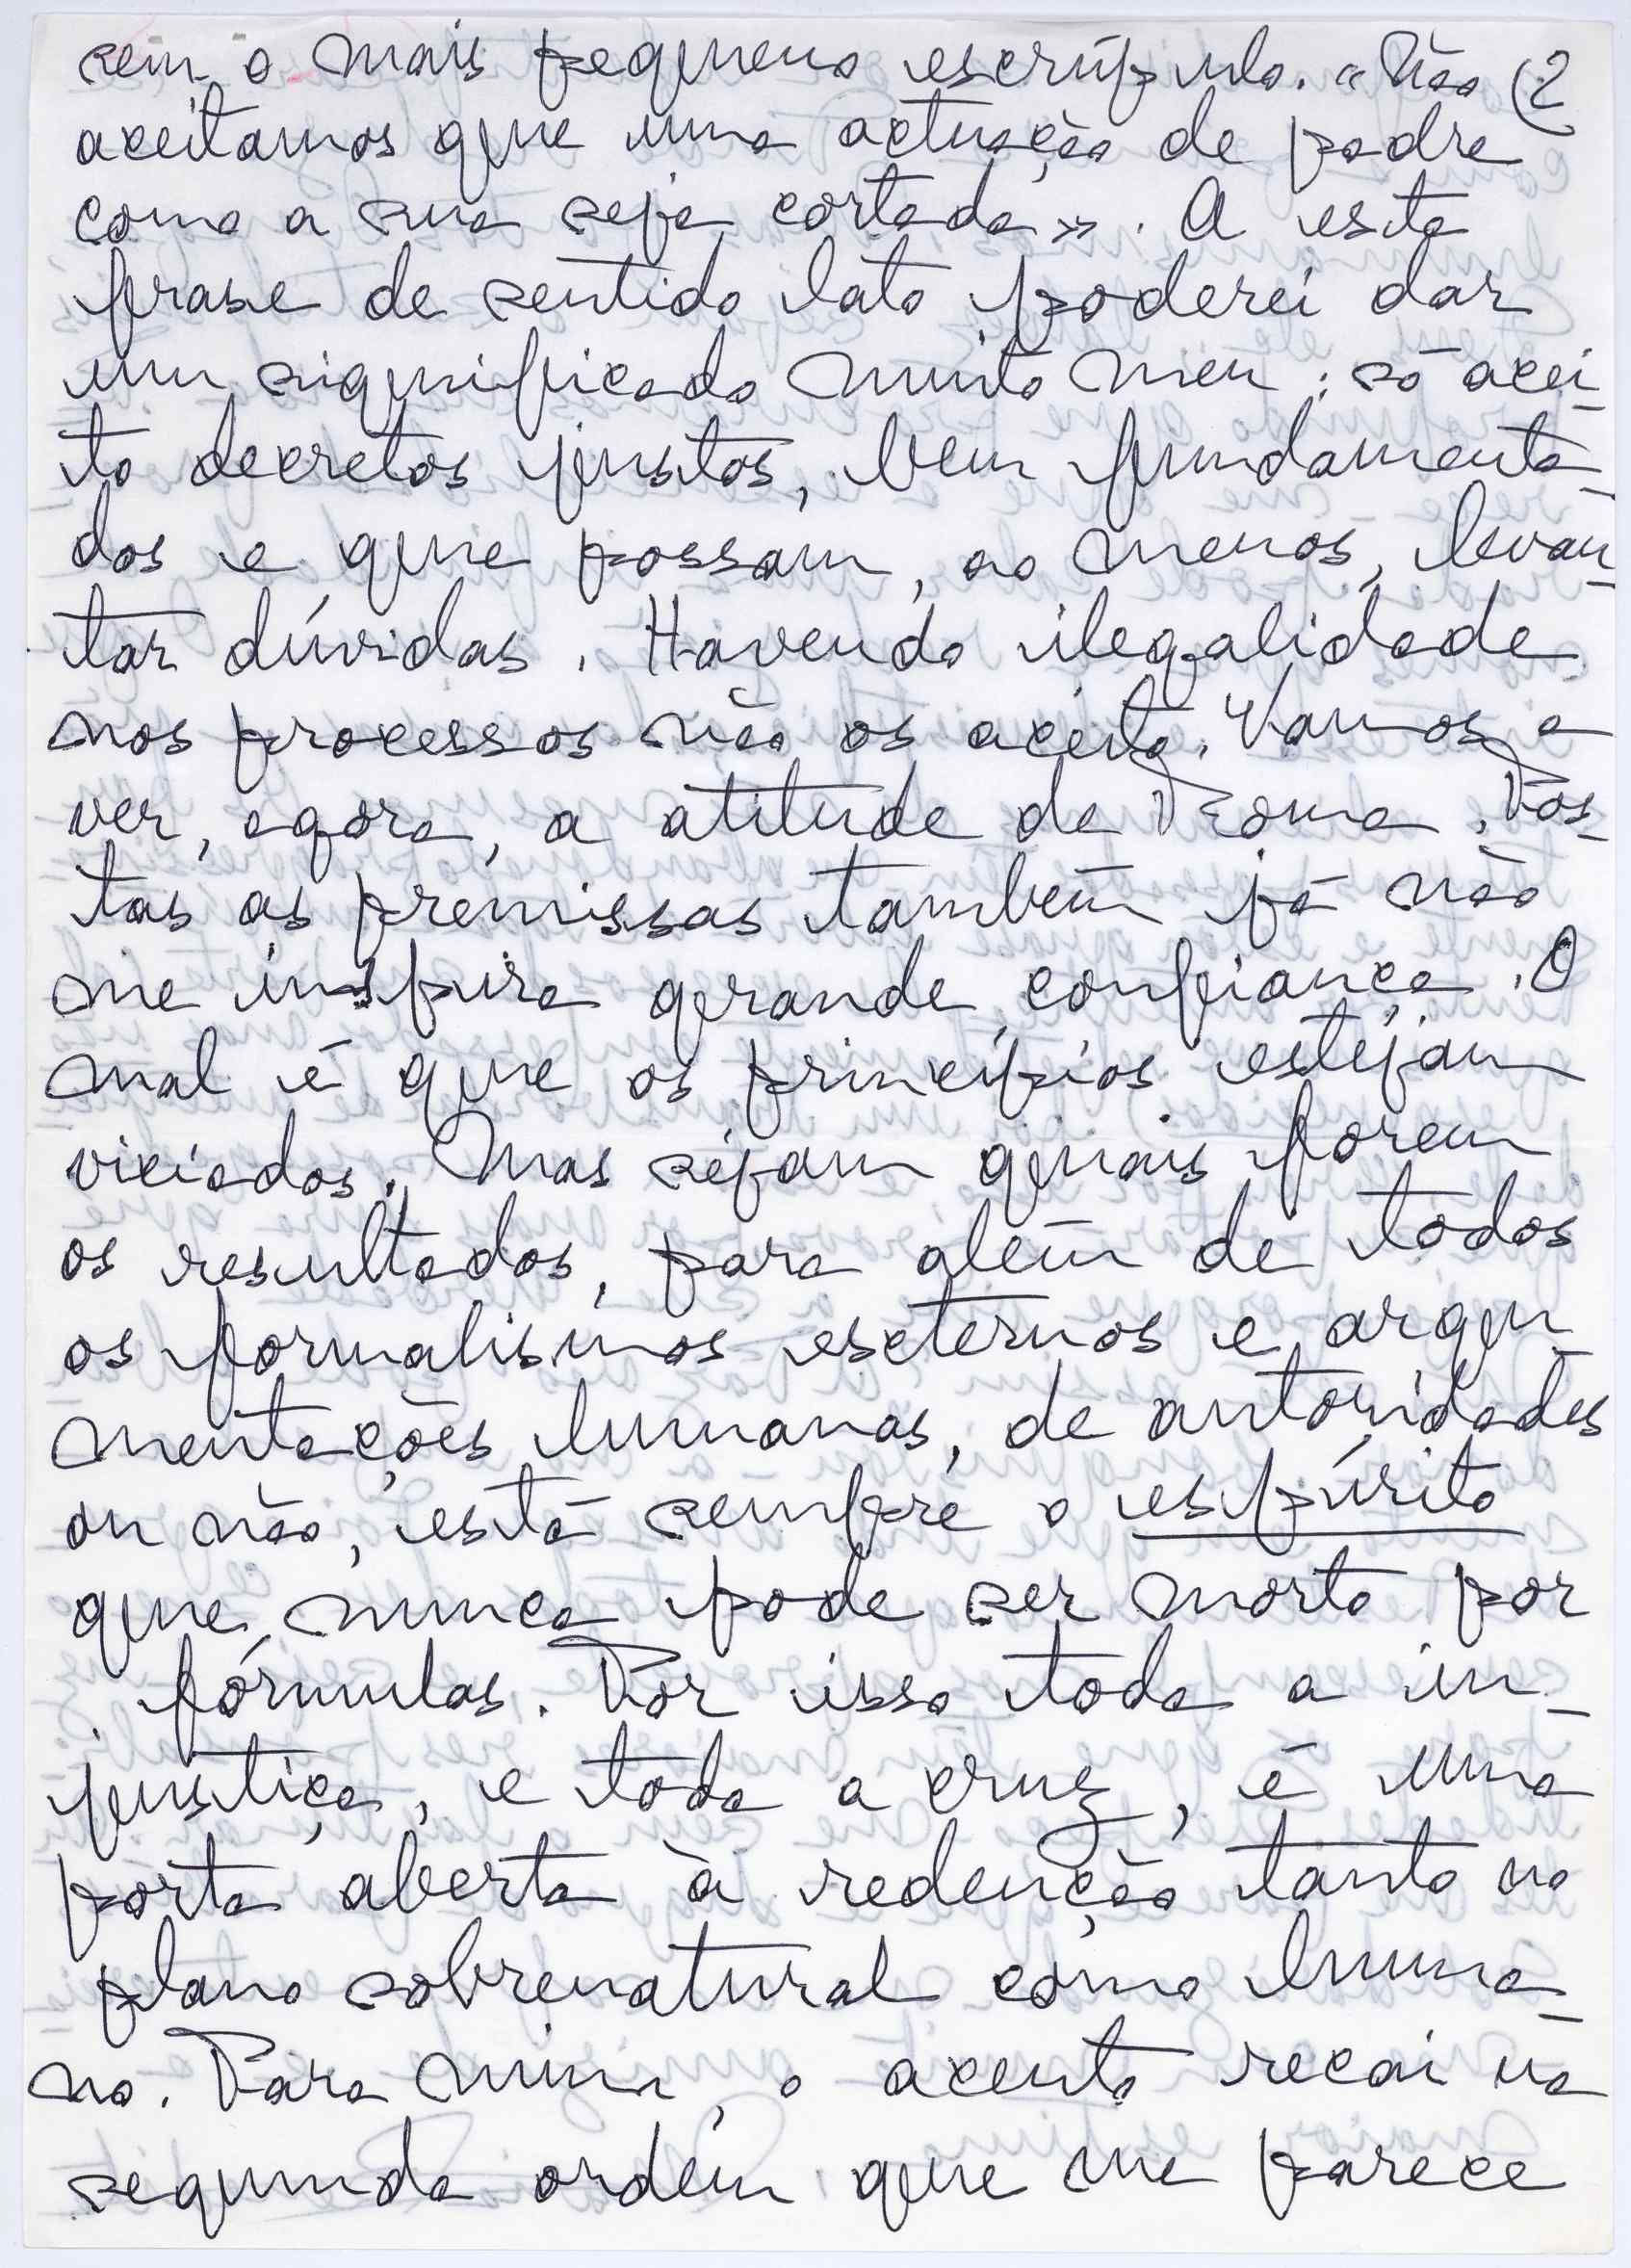 sem o mais pequeno escrúpulo. «Não (2
aceitamos que uma actuação de padre
como a sua seja cortada». A esta
frase de sentido lato poderei dar
um significado muito meu: só acei-
to decretos justos, bem fundamenta-
dos e que possam, ao menos, levan-
tar dúvidas. Havendo ilegalidade
nos processos não os aceito. Vamos a
ver, agora, a atitude de Roma. Pos-
tas as premissas também já não
me inspira grande confiança. O
mal é que os princípios estejam
viciados. Mas sejam quais forem
os resultados, para além de todos
os formalismos externos e argu-
mentações humanas, de autoridades
ou não, está sempre o espírito
que nunca pode ser morto por
fórmulas. Por isso toda a in-
justiça, e toda a cruz, é uma
porta aberta à redenção tanto no
plano sobrenatural como huma-
no. Para mim, o acento recai na
segunda ordem que me parece